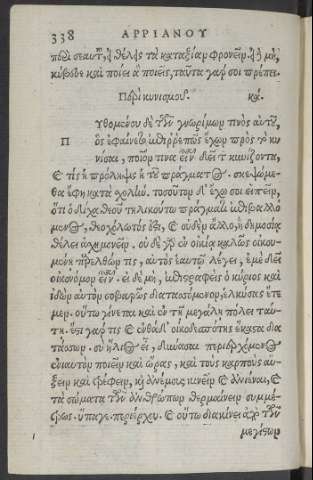 338 ΑΡΡΙΑΝΟΥ
περὶ σεαυτοῦ, ἢ θέλῃς τὰ κατ' ἀξίαν φρονεῖν. ἢ ἢ μὴ,
κύβευε καὶ ποίει ἃ ποιεῖς, ταῦτα γάρ σοι πρέπει.
Περὶ κυνισμοῦ. κά.
Π
Υθομένου δὲ τῶν γνωρίμων τινὸς αὐτοῦ,
ὃς ἐφαίνετο ἐπιρρεπῶς ἔχων πρὸς τὸ κυ
νίσαι, ποῖόν τινα εἶναι δεῖ τὸν κυνίζοντα,
καὶ τίς ἡ πρόληψις ἡ τοῦ πράγματος. σκεψώμε-
θα ἔφη κατὰ σχολήν. τοσοῦτον δ' ἔχω σοι εἰπεῖν,
ὅτι ὁ δίχα θεοῦ τηλικούτῳ πράγματι ἐπιβαλλό
μενος, θεοχόλωτός ἐστι, καὶ οὐδὲν ἄλλο, ἢ δημοσίᾳ
θέλει ἀσχημονεῖν. οὐδὲ γὰρ ἐν οἰκίᾳ καλῶς οἰκου-
μένῃ παρελθών τις, αὐτὸς ἑαυτῷ λέγει, ἐμὲ δεῖ
οἰκονόμον εἶναι. εἰ δὲ μὴ, ἐπιστραφεὶς ὁ κύριος καὶ
ἰδὼν αὐτὸν σοβαρῶς διατασσόμενον, ἑλκύσας ἔτε
μεν. οὕτω γίνεται καὶ ἐν τῇ μεγάλῃ πόλει ταύ-
τῃ. ἔστι γάρ τις καὶ ἐνθάδ' οἰκοδεσπότης ἕκαστα δια
τάσσων. σὺ ἥλιος εἶ, δύνασαι περιερχόμενος
ἐνιαυτὸν ποιεῖν καὶ ὥρας, καὶ τοὺς καρποὺς αὔ-
ξειν καὶ τρέφειν, καὶ ἀνέμους κινεῖν καὶ ἀνιέναι, καὶ
τὰ σώματα τῶν ἀνθρώπων θερμαίνειν συμμέ-
τρως. ὕπαγε, περιέρχου. καὶ οὕτω διακίνει ἀπὸ τῶν
μεγίστων